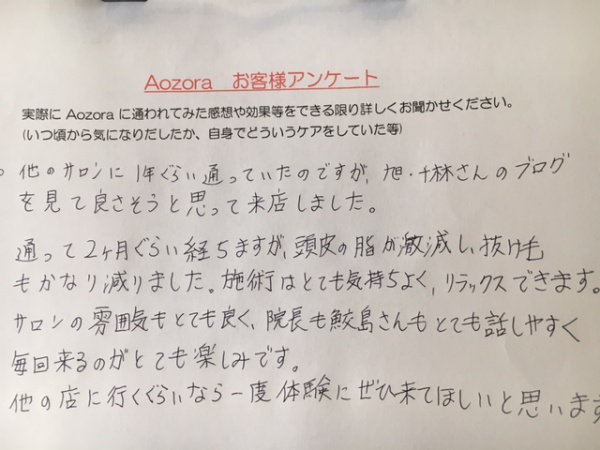 Aozora お客様アンケート
実際に Aozora に通われてみた感想や効果等をできる限り詳しくお聞かせください。
(いつ頃から気になりだしたか、自身でどういうケアをしていた等)
他のサロンに1年ぐらい通っていたのですが、旭・千林さんのブログ
を見て良さそうと思って来店しました。
通って2ヶ月ぐらい経ちますが、頭皮の脂が激減し、抜け毛
もかなり減りました。施術はとても気持ちよく、リラックスできます。
サロンの雰囲気もとても良く、院長も鮫島さんもとても話しやすく
毎回来るのがとても楽しみです。
他の店に行くぐらいなら一度体験にぜひ来てほしいと思います